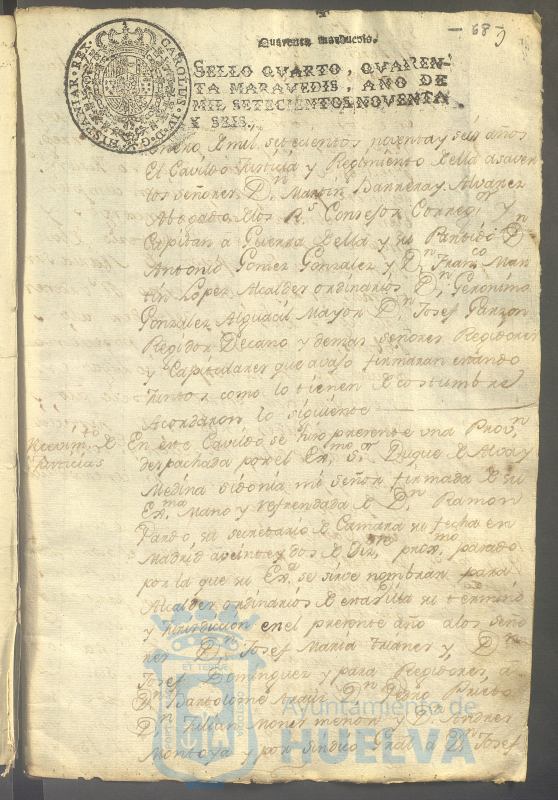 68
Quarenta maravedis.
SELLO QVARTO, QVAREN-
TA MARAVEDIS, AÑO DE
MIL SETECIENTOS NOVENTA
Y SEIS.
CAROLUS IV D G HISPANIAR REX
Enero de mil setecientos noventa y seis años
El Cavildo Justicia y Regimiento de ella a saver
los señores Dn Martin Barrera y Alvarez
Abogado de los Rs Consejos Corregor y
Capitan a Guerra de ella y su Partido Dn
Antonio Gomez Gonzalez y Dn Franco Mar-
tin Lopez Alcaldes ordinarios Dn Geronimo
Gonzalez Alguacil Mayor Dn Josef Garzon
Regidor Decano y demas señores Regidores
y Capitulares que avajo firmaran estando
Juntos como lo tienen de costumbre
Acordaron lo siguiente
Recivimto de Justicias
En este Cavildo se hizo presente una Provon
despachada por el Exmo Sor Duque de Alva y
Medina sidonia mi señor firmada de su
Exma Mano y refrendada de Dn Ramon
Pardo su secretario de Camara su fecha en
Madrid a veinte y dos de Dize proxmo pasado
por la que su Exa se sirve nombrar para
Alcaldes ordinarios de esta Villa su termino
y Jurisdiccion en el presente año a los seño-
res Dn Josef Maria Trianes y Dn
Josef Dominguez y para Regidores a
Dn Bartolome Dn Pedro Prieto
Dn Julian Mones menor y Dn Andres
Montoya y por sindico Gral a Dn Josef
ET TERRAE
CUSTODIA
Ayuntamiento de
HUELVA